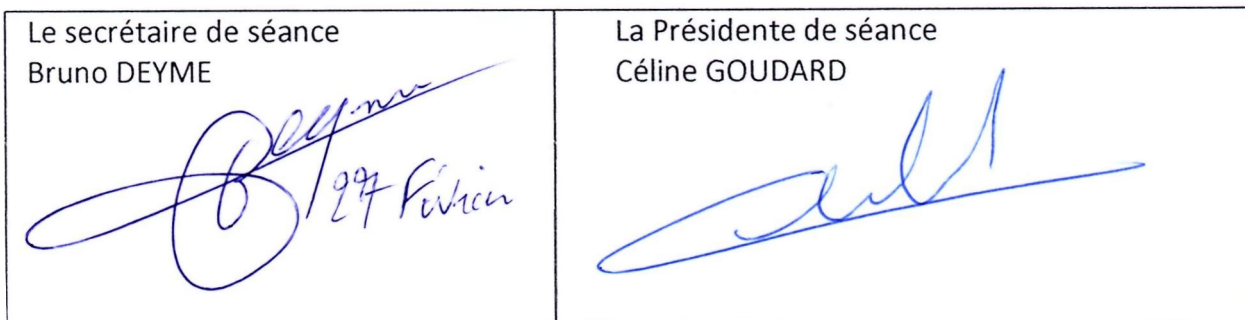 Le secrétaire de séance
Bruno DEYME
27 Février
La Présidente de séance
Céline GOUDARD